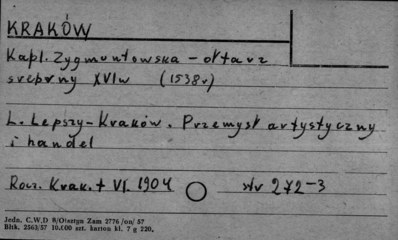 KRAKÓW
Kapl. Zygmuntowska - ołtarz
srebrny XVIw (1538r)
L. Lepszy - Kraków. Przemysł artystyczny
i handel
Rocz. Krak. t VI. 1904 str 272-3
Jedn. C.W.D R/Olsztyn Zam 2776 /on/ 57
Bltk. 2563/57 10.000 szt. karton kl. 7 g 220.